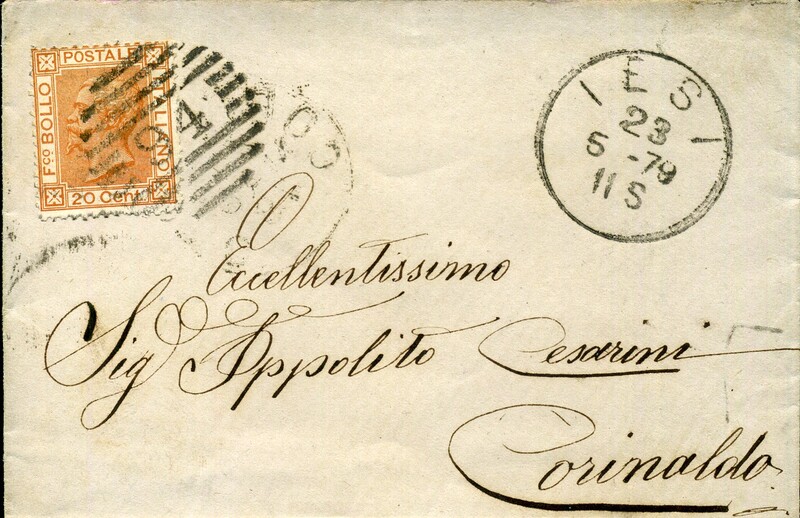 POSTALE
Fco BOLLO
20 Cent
4
IESI
23
5 -79
11 S
Eccellentissimo
Sig Ippolito Cesarini
Corinaldo